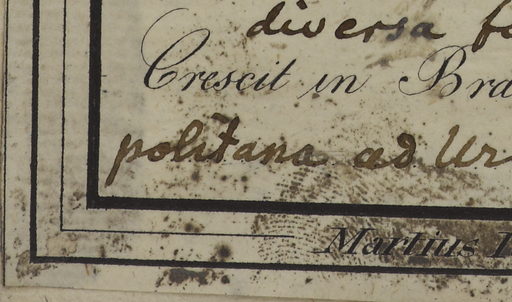 diversa
Crescit in
politana ad
Martius